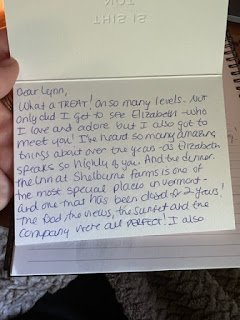 THIS IS
NOT
Dear Lynn,
What a TREAT! On so many levels. Not
only did I get to see Elizabeth - who
I love and adore but I also got to
meet you! I've heard so many amazing
things about over the years - as Elizabeth
speaks so highly of you. And the dinner.
The Inn at Shelburne Farms is one of
the most special places in Vermont -
and one that has been closed for 2 years!
The food, the views, the sunset and the
company were all PERFECT! I also